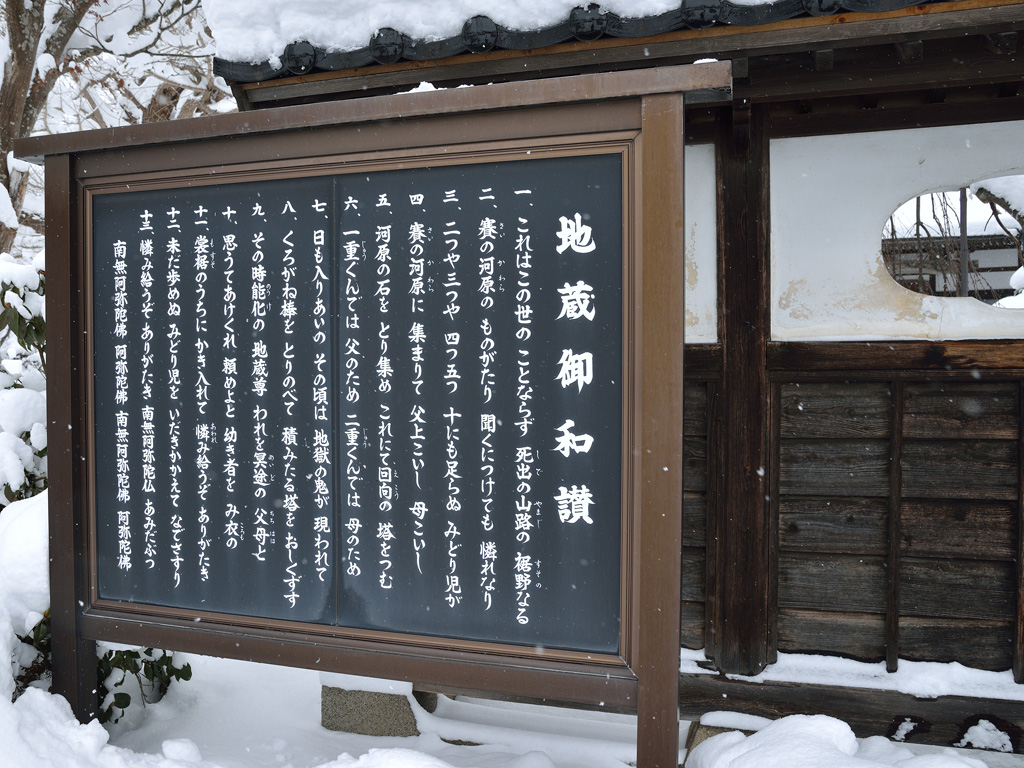 地蔵御和讃
一、これはこの世の ことならず 死出の山路の 裾野なる
二、賽の河原の ものがたり 聞くにつけても 憐れなり
三、二つや三つや 四つ五つ 十にも足らぬ みどり児が
四、賽の河原に 集まりて 父上こいし 母こいし
五、河原の石を とり集め これにて回向の 塔をつむ
六、一重つんでは 父のため 二重つんでは 母のため
七、日も入りあいの その頃は 地獄の鬼が 現われて
八、くろがね棒を とりのべて 積みたる塔を おしくずす
九、その時能化の 地蔵尊 われを冥途の 父母と
十、思うてあけくれ 頼めよと 幼き者を み衣の
十一、裳裾のうちに かき入れて 憐み給うぞ ありがたき
十二、未だ歩めぬ みどり児を いだきかかえて なでさすり
十三、憐み給うぞ ありがたき 南無阿弥陀仏 あみだぶつ
南無阿弥陀佛 阿弥陀佛 南無阿弥陀佛 阿弥陀佛